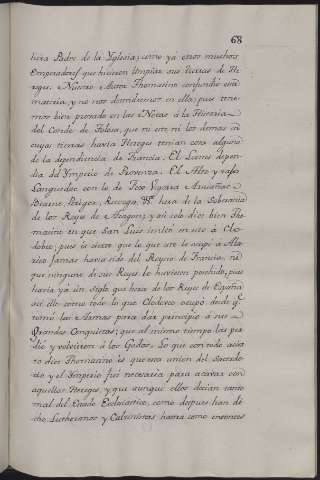 68
licia Padre de la Yglesia; como yá otros muchos
Emperadores que hicieron limpiar sus tierras de He
reges. Nuestro Autor Thomasino confundió esta
materia, y no nos detendremos en ella, pues tene
mos bien provado en las Notas á la Historia
del Conde de Tolosa, que ni este ni los demas en
cuyas tierras havia Hereges tenian cosa alguna
de la dependiencia de Francia. El Leonés depen
dia del Ymperio de Provenza. El Alto y vajo
Languedoc con lo de Fox Vigorra Armañac
Bearne, Perigor, Roerga, &c. hera de la Soberania
de los Reyes de Aragon; y asi solo dice bien Tho
masino en que San Luis imitó en esto á Clo
doveo, pues es cierto que lo que este le ocupó á Ala
rico jamas havia sido del Reyno de Francia, ni
que ninguno de sus Reyes lo huvieron posehido, pues
havia yá un siglo que hera de los Reyes de España
asi ello como todo lo que Clodoveo ocupó desde qe.
tomó las Armas para dar principio á sus
Grandes Conquistas; que al mismo tiempo las per
dió y volvieron á los Godos. Lo que con todo acier
to dice Thomasino es que esta union del Sacerdo
cio y el Ymperio fué necesaria para acavar con
aquellos Hereges, y que aunque ellos decian tanto
mal del Estado Eclesiastico, como despues han di
cho Lutheranos y Calvinistas, hasta como entonces